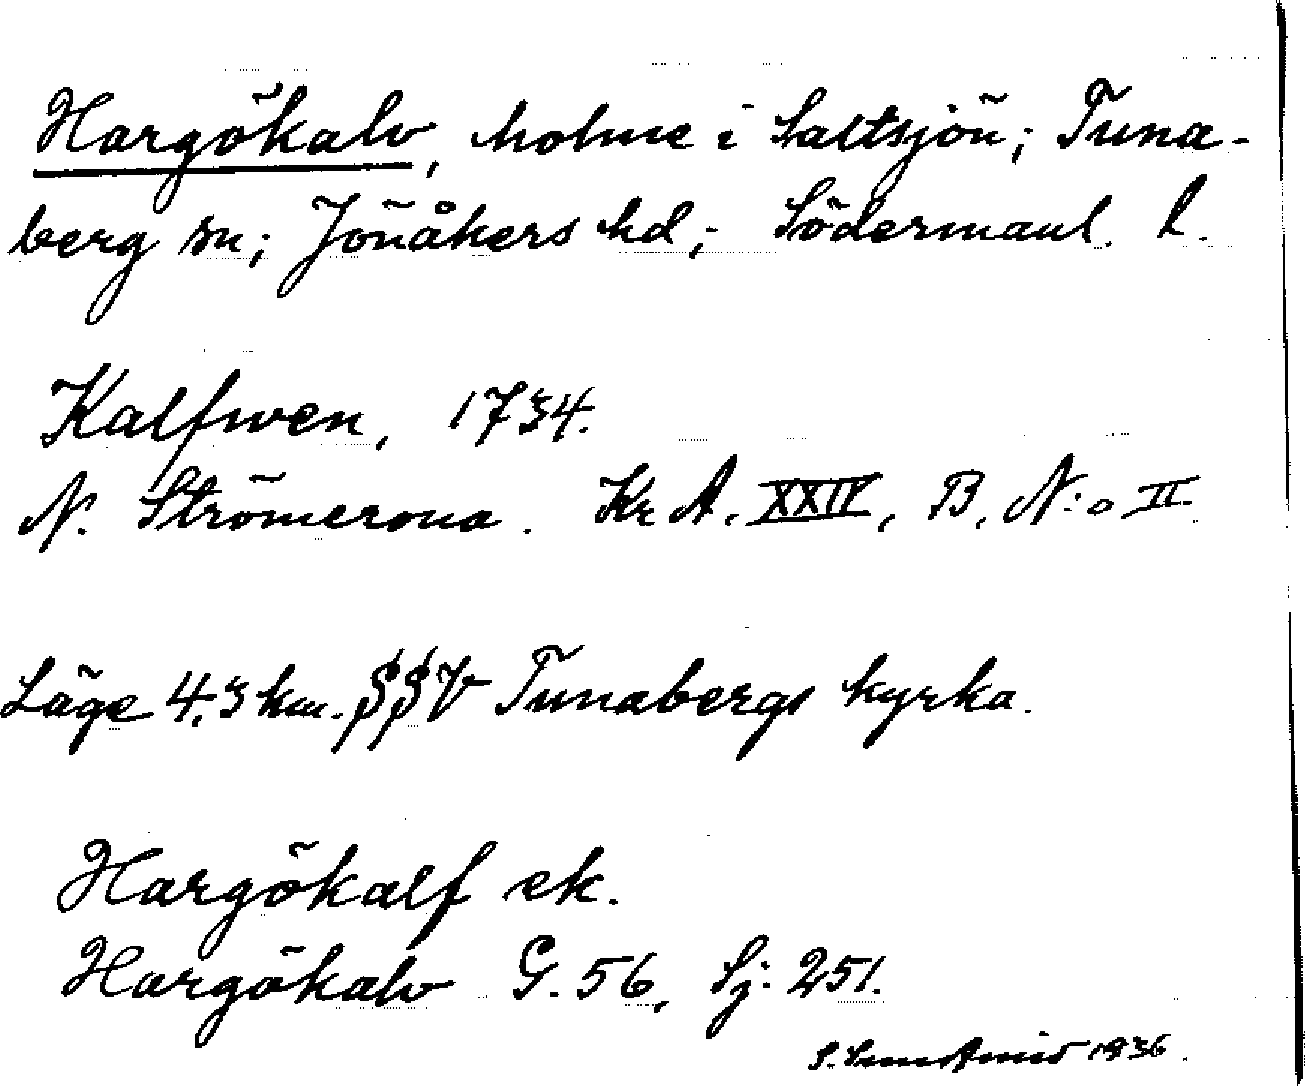 Hargökalv, holme i Saltsjön; Tuna-
berg sn; Jönåkers hd; Södermanl. l.
Kalfwen, 1734.
N. Strömcrona. Kr A. XXIV, B, N:o II
Läge 4.3 km. SSV Tunabergs kyrka.
Hargökalf ek.
Hargökalv G. 56, Sj: 251.
S. 1936.